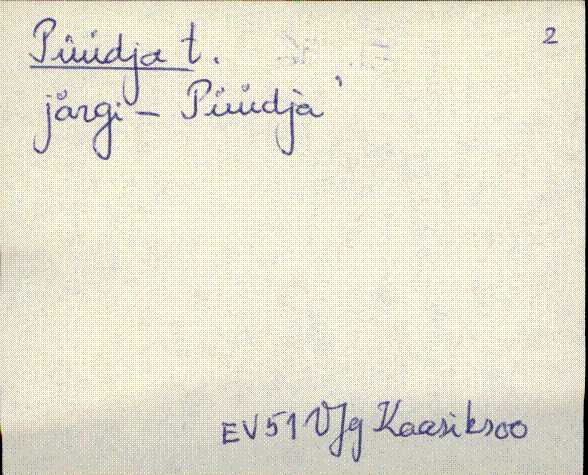 Püüdja t. 2
järgi – Püüdja'
EV 51 VJg Kaasiksoo